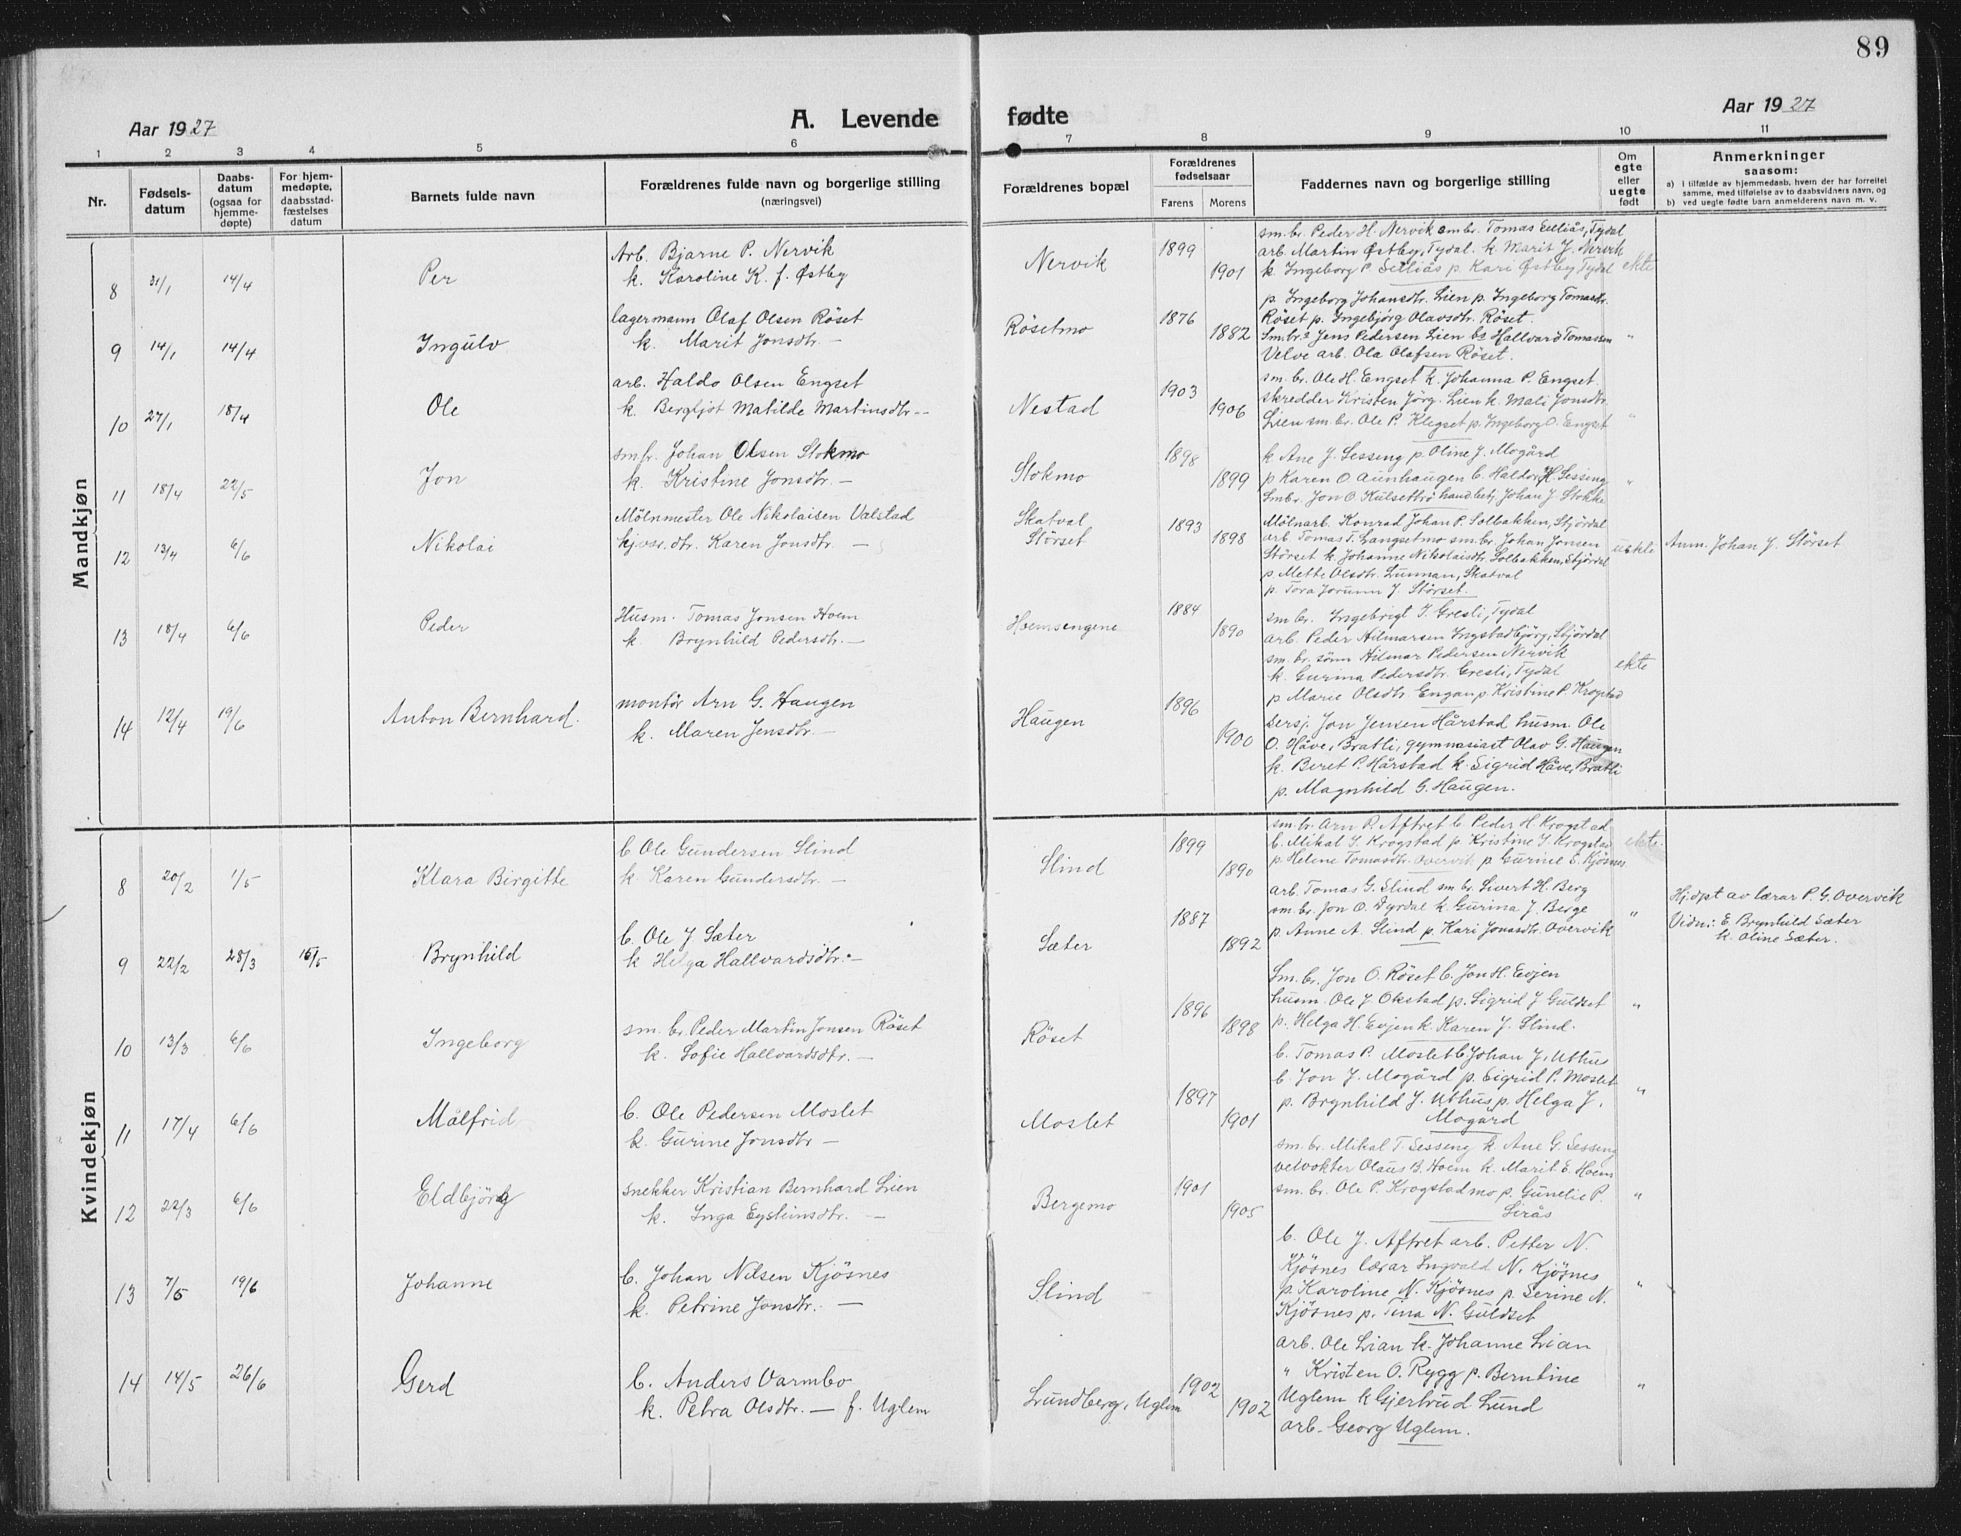 89
Aar 1927
A. Levende fødte
Aar 1927
1 2 3 4 5 6 7 8 9 10 11
Nr.
Fødsels-
datum
Daabs-
datum
(ogsaa for
hjemme-
døpte)
For hjem-
medøpte,
daabsstad-
fæstelses
datum
Barnets fulde navn
Forældrenes fulde navn og borgerlige stilling
(næringsvei)
Forældrenes bopæl
Forældrenes
fødselsaar
Farens Morens
Faddernes navn og borgerlige stilling
Om
egte
eller
uegte
født
Anmerkninger
saasom:
a) I tilfælde av hjemmedaab, hvem der har forrettet
samme, med tilføielse av to daabsvidners navn, og
b) ved uegte fødte barn anmelderens navn m. v.
Mandkjøn
8 31/1 14/4 Per
Arb. Bjarne P. Nervik
k. Karoline K. f. Østby
Nervik 1899 1901
sm.br. Peder H. Nervik sm br. Tomas Selliås, Tydal
arb. Martin Østby, Tydal. k. Marit J. Nervik
k. Ingeborg P. Selliås p. Kari Østby Tydal
ekte
9 14/1 14/4 Ingulv
lagermann Olaf Olsen Röset
k. Marit Jonsdtr. —
Rösetmo 1876 1882
p. Ingeborg Johansdtr. Lien p. Ingeborg Tomasdtr.
Röset p. Ingebjørg Olavsdtr. Röset.
Sm.br. Jens Pedersen Lien bs Hallvard Tomassen
Velve arb. Ola Olafsen Röset.
"
10 27/1 18/4 Ole
arb. Haldo Olsen Engset
k. Bergljot Matilde Martinsdtr. —
Nestad 1903 1906
sm. br. Ole H. Engset k. Johanna P. Engset.
skredder Kristen Jörg. Lien k. Mali Jonsdtr.
Lien sm. br. Ole P. Klegset p. Ingeborg O. Engset
"
11 18/4 22/5 Jon
smbr. Johan Olsen Stokmo
k. Kristine Jonsdtr. —
Stokmo 1898 1899
k Ane J. Sesseng p. Oline J. Mogård
p Karen O. Aunhaugen b. Haldor H. Sesseng
Smbr. Jon O. Kulsettrö handbetj. Johan J. Stokke
"
12 13/4 6/6 Nikolai
Mölnmester Ole Nikolaisen Valstad
gjær.dtr. Karen Jonsdtr. —
Skatval
Störset
1893 1898
Mölnarb. Konrad Johan P. Solbakken, Stjördal
arb Tomas T. Langsetmo sm.br. Johan Jonsen
Störset k. Johanne Nikolaisdtr. Solbakken, Stjördal
p. Mette Olsdtr. Lunnan, Skatval
p. Tora Jorunn J. Störset.
uekte
Anm. Johan J. Störset
13 18/4 6/6 Peder
Husm. Tomas Jonsen Hoem
k. Brynhild Pedersdtr. —
Hoemsengene 1884 1890
sm br. Ingebrigt J. Gresli, Tydal
arb. Peder Hilmarsen Ingstadbjörg, Stjördal
sm. br. sönn Hilmar Pedersen Nervik
k. Gurina Pedersdtr. Gresli, Tydal
p. Marie Olsdtr. Engan p. Kristine P. Krogstad
ekte
14 12/4 19/6 Anton Bernhard.
montör Arn G. Haugen
k. Maren Jensdtr. —
Haugen 1896 1900
Sersj. Jon Jensen Hårstad husm. Ole
O. Håve, Bratli, gymnasiast Olav G. Haugen
k. Beret P. Hårstad k. Sigrid Håve, Bratli
p. Magnhild G. Haugen.
Kvindekjøn
8 20/2 1/5 Klara Birgitte
b. Ole Gundersen Slind
k. Karen Gundersdtr. —
Slind 1899 1890
sm. br. Arn P. Aftret b. Peder H. Krogstad
b. Mikal J. Krogstad p. Kristine J. Krogstad
p. Helene Tomasdtr. Overvik p Gurine E. Kjösnes
ekte
9 22/2 28/3 15/5 Brynhild
b. Ole J Sæter
k Helga Hallvardsdtr. —
Sæter 1887 1892
arb. Tomas G. Slind sm br. Sivert H. Berg
sm. br. Jon O. Dyrdal k. Gurina J. Berge
p. Anne A. Slind p. Kari Jonasdtr. Overvik
"
Hj.döpt av lærar P. G. Overvik
Vidn: E. Brynhild Sæter
k. Oline Sæter.
10 13/3 6/6 Ingeborg
sm. br. Peder Martin Jonsen Röset
k. Sofie Hallvardsdtr. —
Röset 1896 1898
Sm. br. Jon O. Röset b. Jon H. Evjen
husm. Ole J Okstad p. Sigrid J Guldset
p. Helga H. Evjen k. Karen J. Slind.
"
11 17/4 6/6 Målfrid
b. Ole Pedersen Moslet
k. Gurine Jonsdtr —
Moslet 1897 1901
b. Tomas P. Moslet b Johan J. Uthus
b. Jon J. Mogård p. Sigrid P. Moslet
p. Brynhild J. Uthus p. Helga J.
Mogård
"
12 22/3 6/6 Eldbjörg
snekker Kristian Bernhard Lien
k. Inga Eysteinsdtr. —
Bergemo 1901 1905
sm. br. Mikal T. Sesseng k Ane G. Sesseng
veivokter Olaus B. Hoem k. Marit E. Hoem
sm. br. Ole P. Krogstadmo p. Gunelie P.
Lirås
"
13 7/5 19/6 Johanne
b. Johan Nilsen Kjösnes
k. Petrine Jonsdtr. —
Slind
b. Ole J. Aftret arb. Petter N.
Kjösnes lærar Ingvald N. Kjösnes
p. Karoline N. Kjösnes p. Serine N.
Kjösnes p. Tina N. Guldset
"
14 14/5 26/6 Gerd
b. Anders Varmbo
k. Petra Olsdtr. — f. Uglem
Lundberg, Uglem 1902 1902
arb. Ole Lian k. Johanne Lian
" Kristen O. Rygg p. Berntine
Uglem k Gjertrud Lund
arb. Georg Uglem.
"